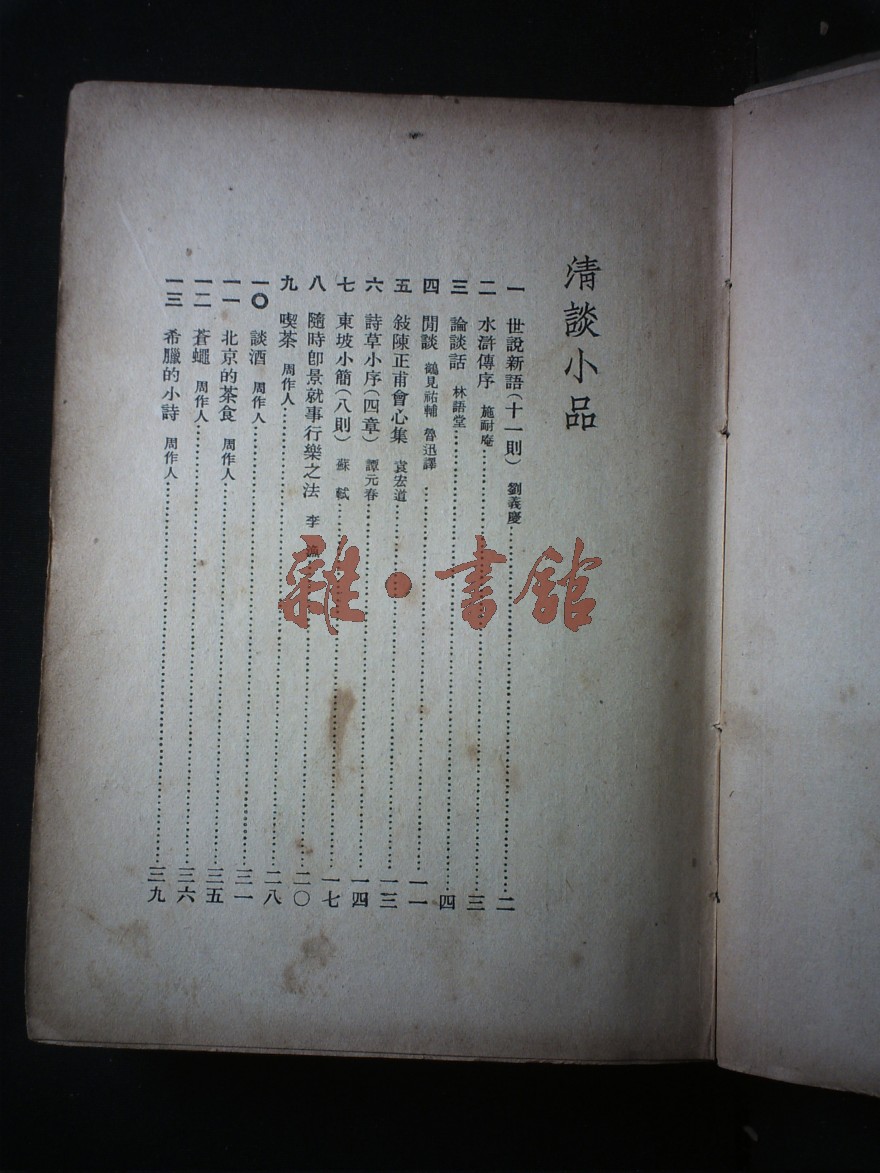 清談小品
一 世說新語(十一則) 劉義慶 二
二 水滸傳序 施耐庵 三
三 論談話 林語堂 四
四 閒談 鶴見祐輔 魯迅譯 一一
五 敍陳正甫會心集 袁宏道 一三
六 詩草小序(四章) 譚元春 一四
七 東坡小簡(八則) 蘇軾 一七
八 隨時卽景就事行樂之法 李 二〇
九 喫茶 周作人 二八
一〇 談酒 周作人 三一
一一 北京的茶食 周作人 三五
一二 蒼蠅 周作人 三六
一三 希臘的小詩 周作人 三九
雜·書館